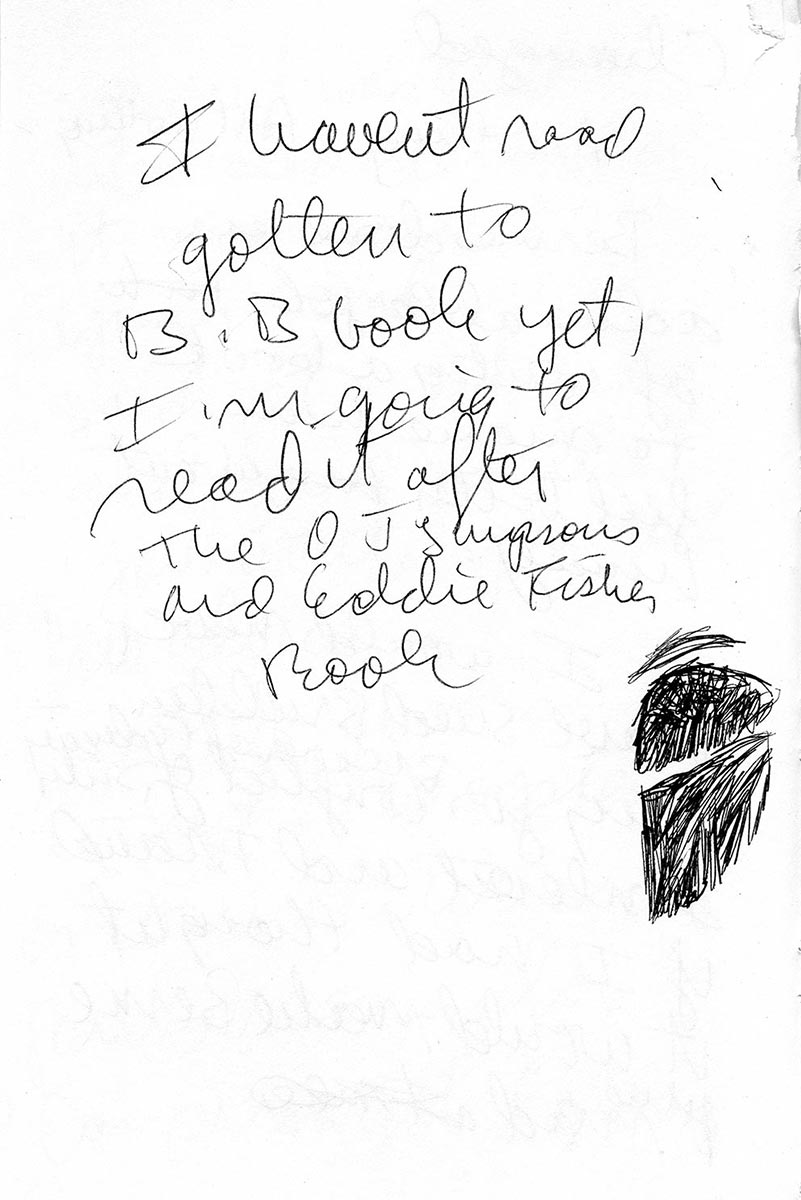 I havent read
gotten to
B.B book yet,
I'm going to
read it after
the O J Simpsons
and Eddie Fisher
Book